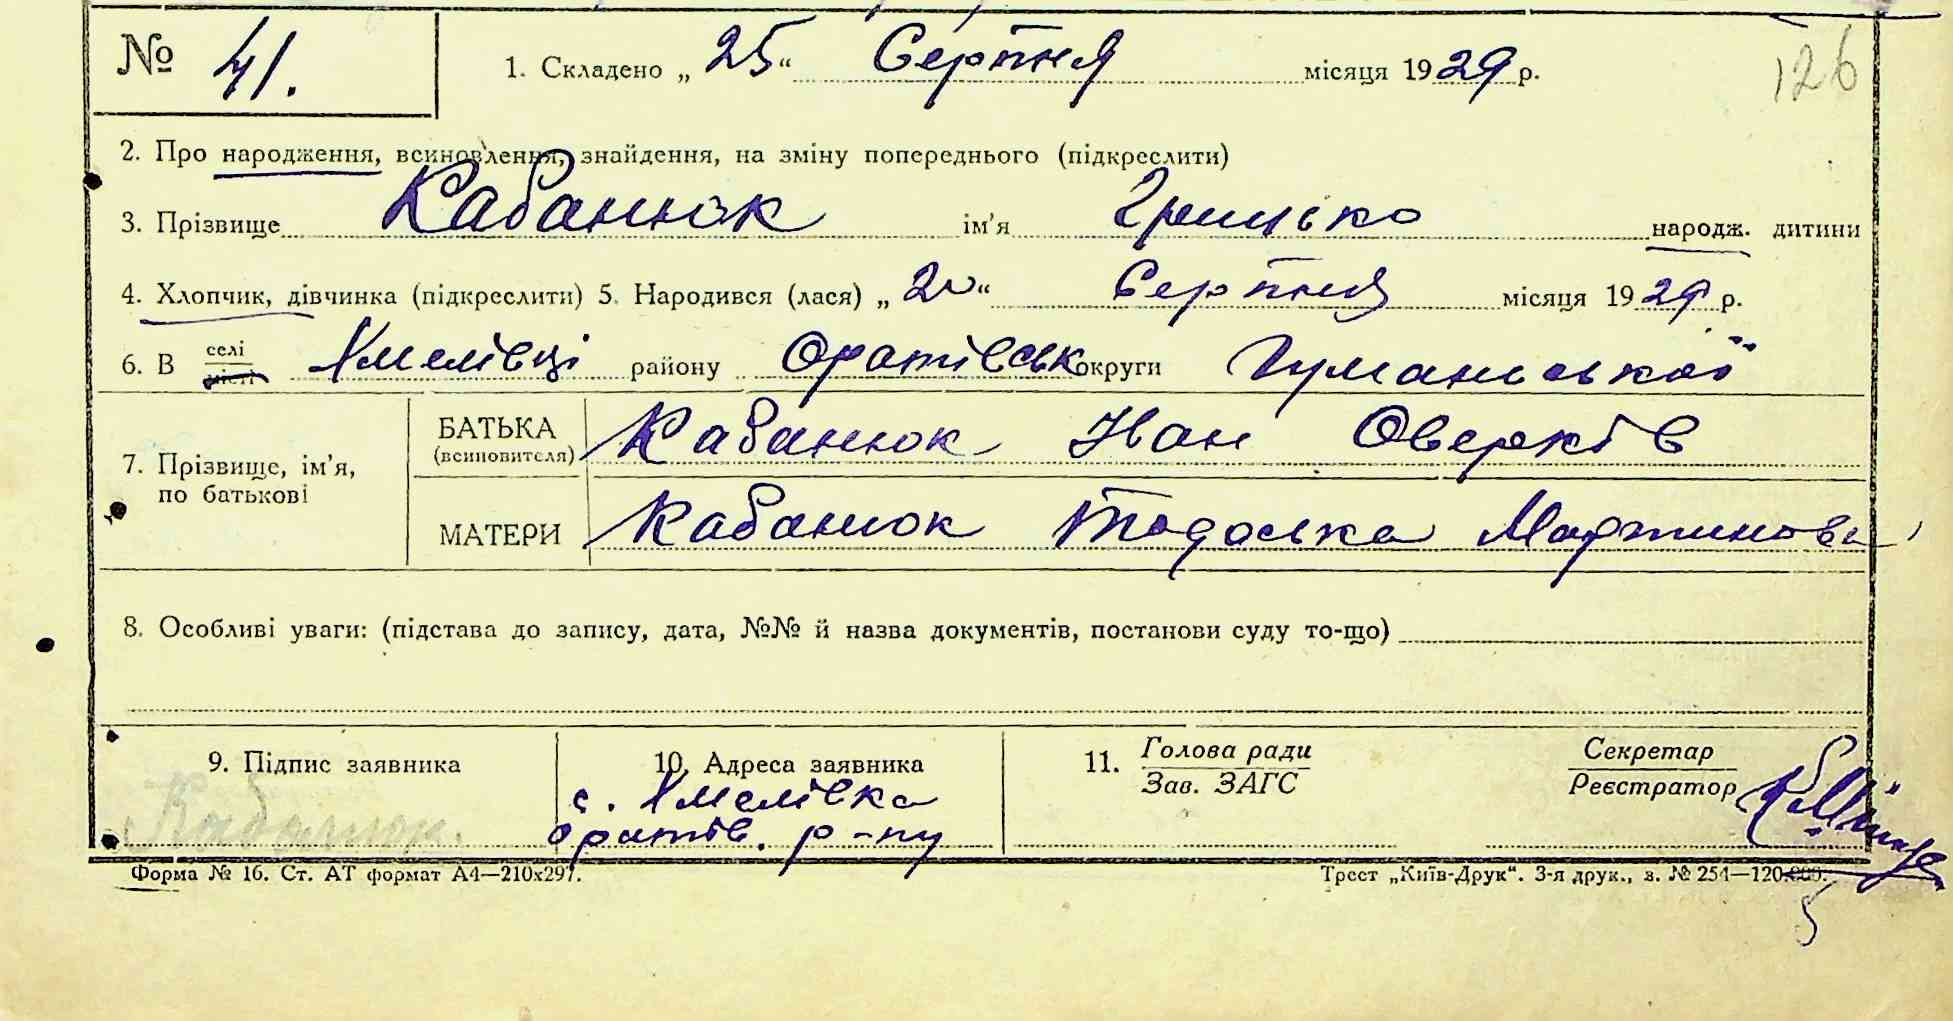 № 41.
1. Складено „25“ Серпня місяця 1929 р.
126
2. Про народження, всиновлення, знайдення, на зміну попереднього (підкреслити)
3. Прізвище Кабанюк ім’я Грицько народж. дитини
4. Хлопчик, дівчинка (підкреслити) 5. Народився (лася) „20“ Серпня місяця 1929 р.
6. В селі місті Хмелівці району Оратівськ округи Гуманської
7. Прізвище, ім’я, по батькові
БАТЬКА (всиновителя) Кабанюк Іван Оверків
МАТЕРИ Кабанюк Тодоська Мартинова
8. Особливі уваги: (підстава до запису, дата, №№ й назва документів, постанови суду то-що)
9. Підпис заявника
Кабанюк.
10. Адреса заявника
с. Хмелівка
Оратів. р-ну
11. Голова ради
Зав. ЗАГС
Секретар
Реєстратор
Форма № 16. Ст. АТ формат А4—210х297.
Трест „Київ-Друк“. 3-я друк., з. № 254—120.000.
5